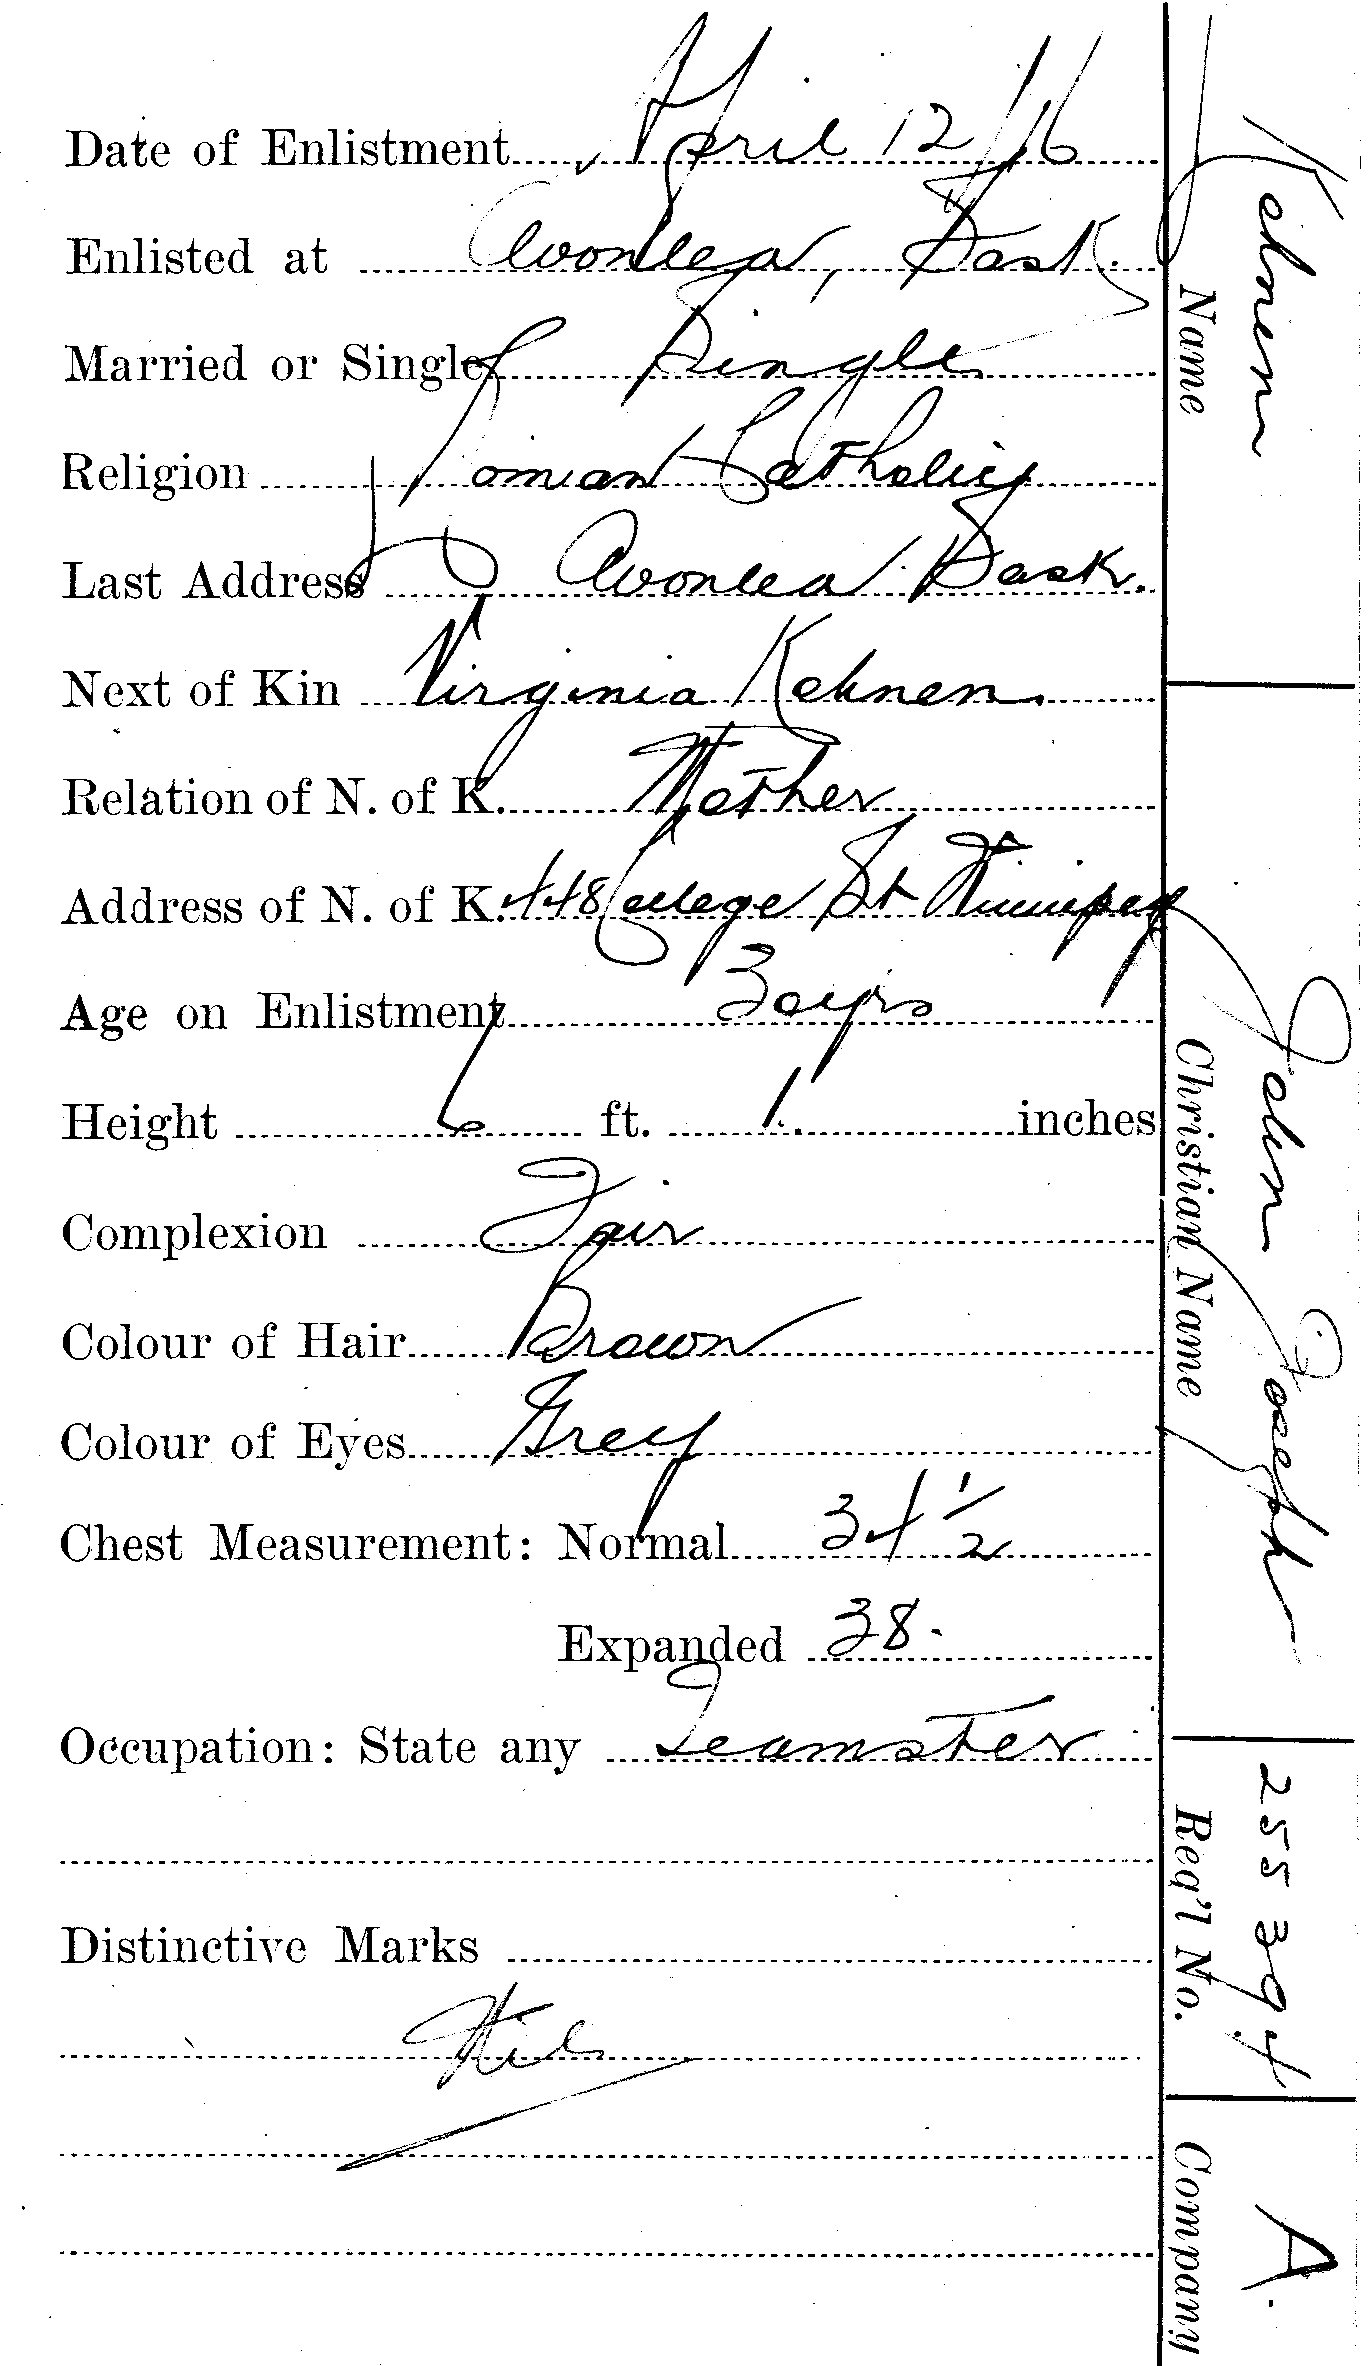 Date of Enlistment April 12/16
Enlisted at Avonlea, Sask.
Married or Single Single
Religion Roman Catholic
Last Address Avonlea Sask.
Next of Kin Virginia Kehnen
Relation of N. of K. Mother
Address of N. of K. 448 College St Winnipeg
Age on Enlistment 30 yrs
Height 6 ft. 1 inches
Complexion Fair
Colour of Hair Brown
Colour of Eyes Grey
Chest Measurement: Normal 34 1/2
Expanded 38.
Occupation: State any Teamster
Distinctive Marks
Nil
Kehnen
Name
John Joseph
Christian Name
255394
Reg'l No.
A.
Company